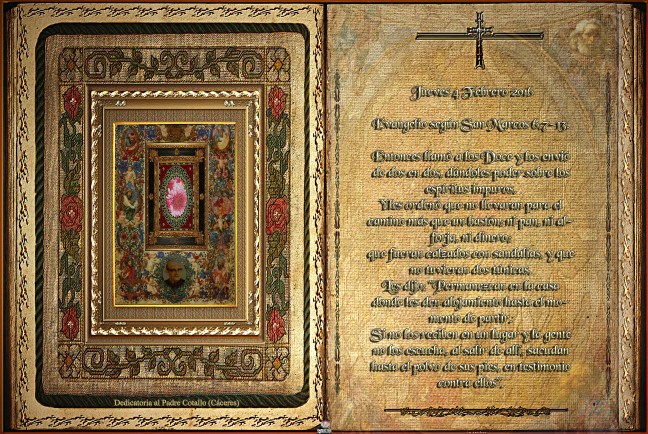 Dedicatoria al Padre Cotallo (Cáceres)
Jueves 4 Febrero 2016
Evangelio según San Marcos 6,7-13.
Entonces llamó a los Doce y los envió
de dos en dos, dándoles poder sobre los
espíritus impuros.
Y les ordenó que no llevaran para el
camino más que un bastón; ni pan, ni al-
forja, ni dinero;
que fueran calzados con sandalias, y que
no tuvieran dos túnicas.
Les dijo: "Permanezcan en la casa
donde les den alojamiento hasta el mo-
mento de partir.
Si no los reciben en un lugar y la gente
no los escucha, al salir de allí, sacudan
hasta el polvo de sus pies, en testimonio
contra ellos".